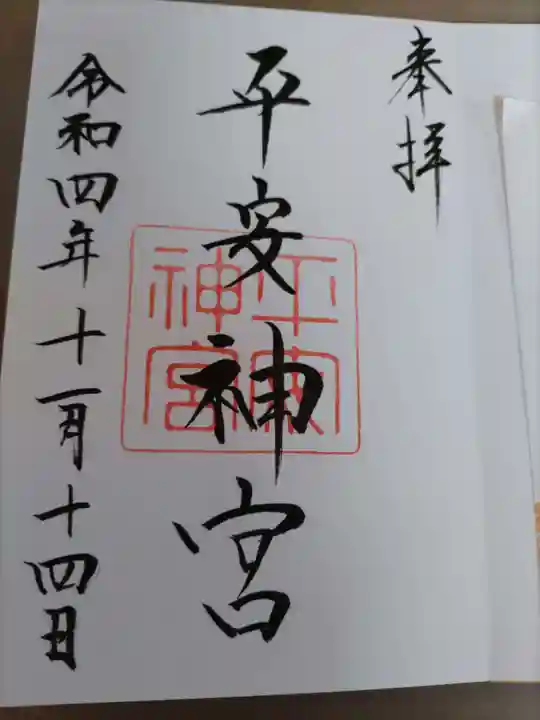 奉拝
平安神宮
平安
神宮
令和四年十一月十四日